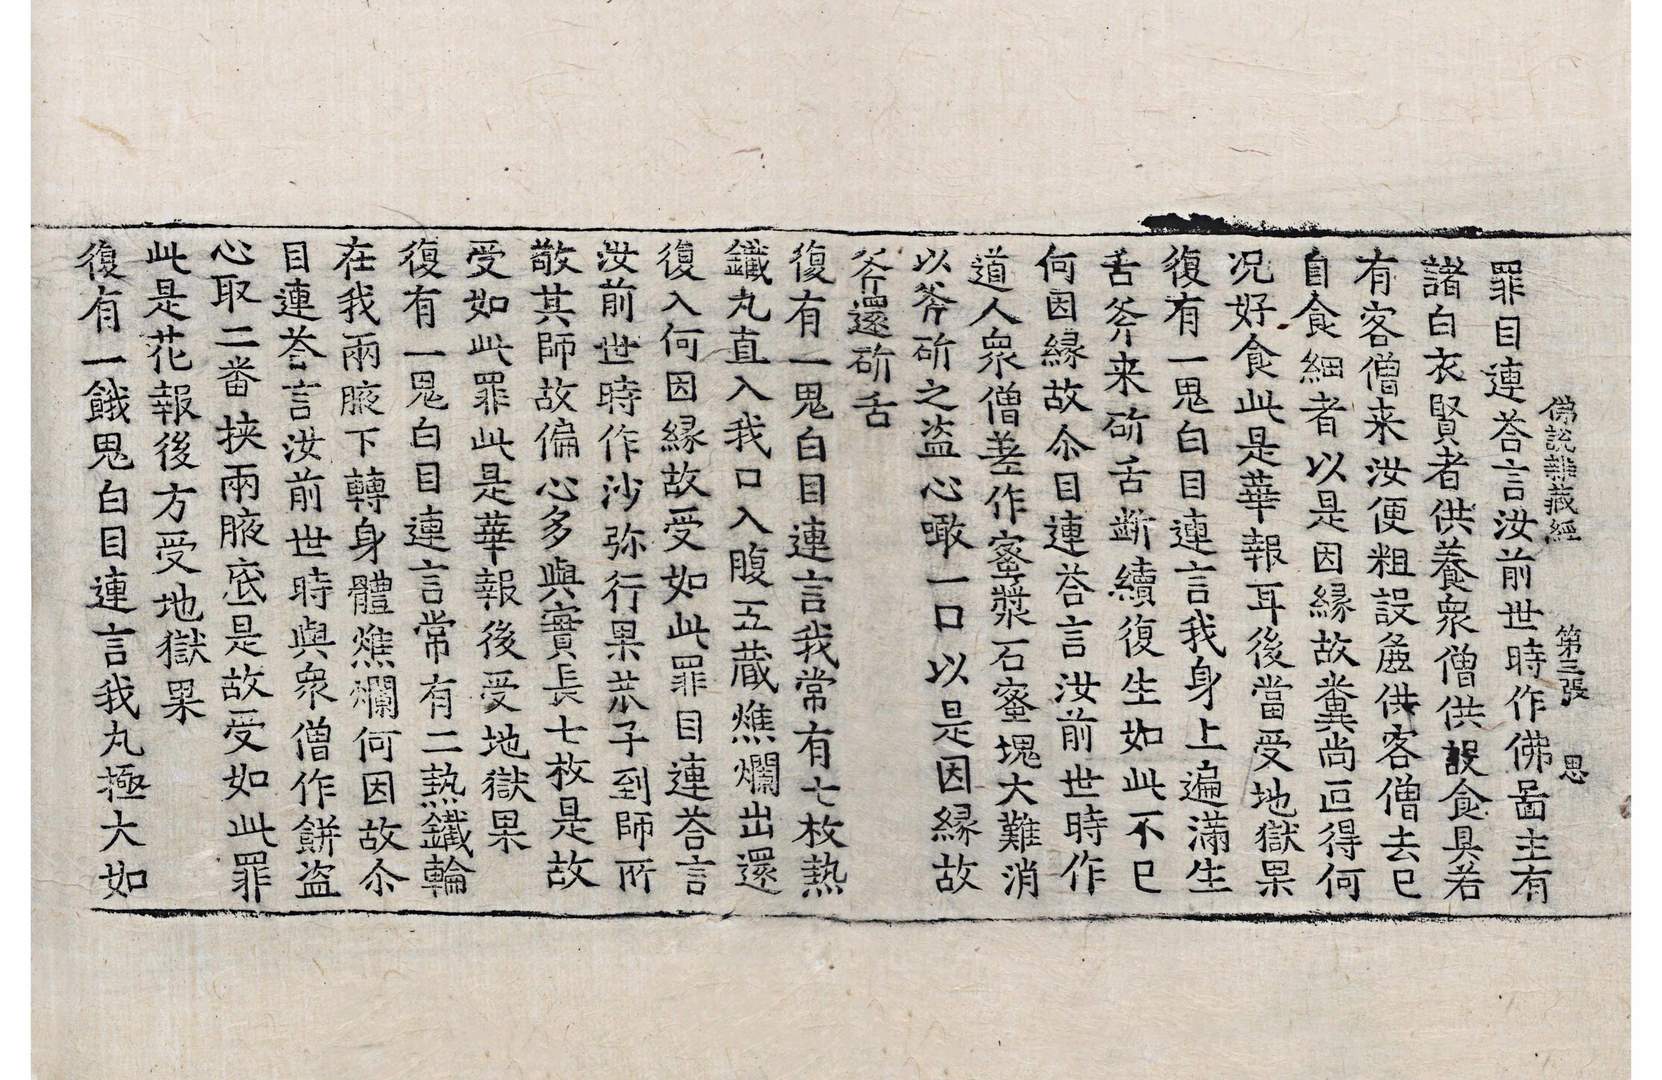 佛說雜藏經 第三張 思
罪目連荅言汝前世時作佛啚主有
諸白衣賢者供養衆僧供設食具若
有客僧来汝便粗設麁供客僧去已
自食細者以是因緣故糞尚叵得何
况好食此是華報耳後當受地獄果
復有一鬼白目連言我身上遍滿生
舌斧来斫舌斷續復生如此不已
何因緣故尒目連荅言汝前世時作
道人衆僧差作蜜漿石蜜塊大難消
以斧斫之盜心噉一口以是因緣故
斧還斫舌
復有一鬼白目連言我常有七枚熱
鐵丸直入我口入腹五藏燋爛出還
復入何因緣故受如此罪目連荅言
汝前世時作沙弥行果蓏子到師所
敬其師故偏心多與實長七枚是故
受如此罪此是華報後受地獄果
復有一鬼白目連言常有二熱鐵輪
在我兩腋下轉身體燋爛何因故尒
目連荅言汝前世時與衆僧作餅盜
心取二番挾兩腋底是故受如此罪
此是花報後方受地獄果
復有一餓鬼白目連言我丸極大如